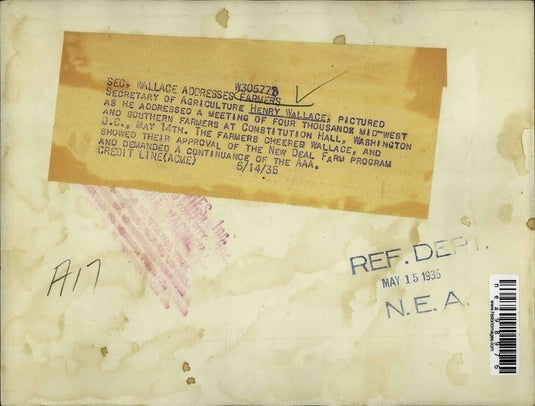 W305773
SEC. WALLACE ADDRESSES FARMERS
SECRETARY OF AGRICULTURE HENRY WALLACE, PICTURED
AS HE ADDRESSED A MEETING OF FOUR THOUSAND MID-WEST
AND SOUTHERN FARMERS AT CONSTITUTION HALL, WASHINGTON
D.C., MAY 14TH. THE FARMERS CHEERED WALLACE, AND
SHOWED THEIR APPROVAL OF THE NEW DEAL FARM PROGRAM
AND DEMANDED A CONTINUANCE OF THE AAA.
CREDIT LINE(ACME) 5/14/35
A17
REF. DEPT.
MAY 15 1935
N.E.A.
nea98976
www.historicimages.com